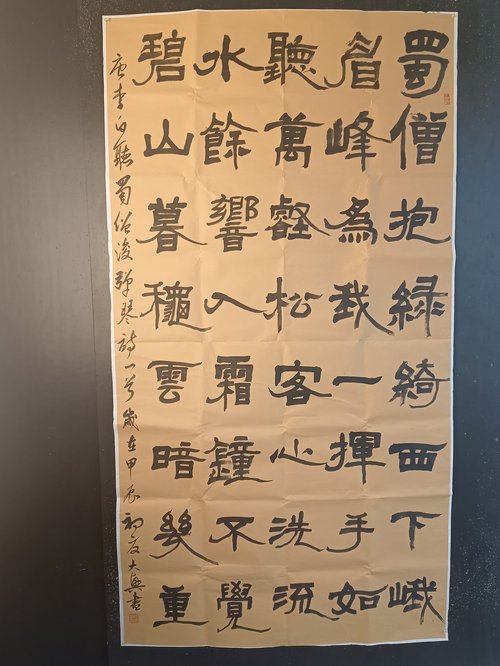 蜀僧抱緑綺西下峨
眉峰為我一揮手如
聽萬壑松客心洗流
水餘響入霜鐘不覺
碧山暮穐雲暗幾重
唐李白聽蜀僧浚彈琴詩一首歲在甲辰初夏大興書